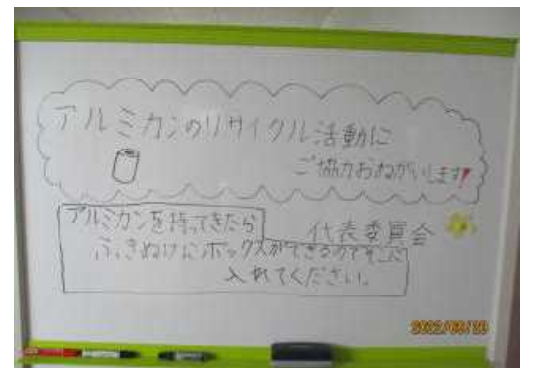 アルミカンのリサイクル活動に
ご協力おねがいします!
アルミカンを持ってきたら
代表委員会
ふきぬけにボックスができるのでそこに
入れてください。